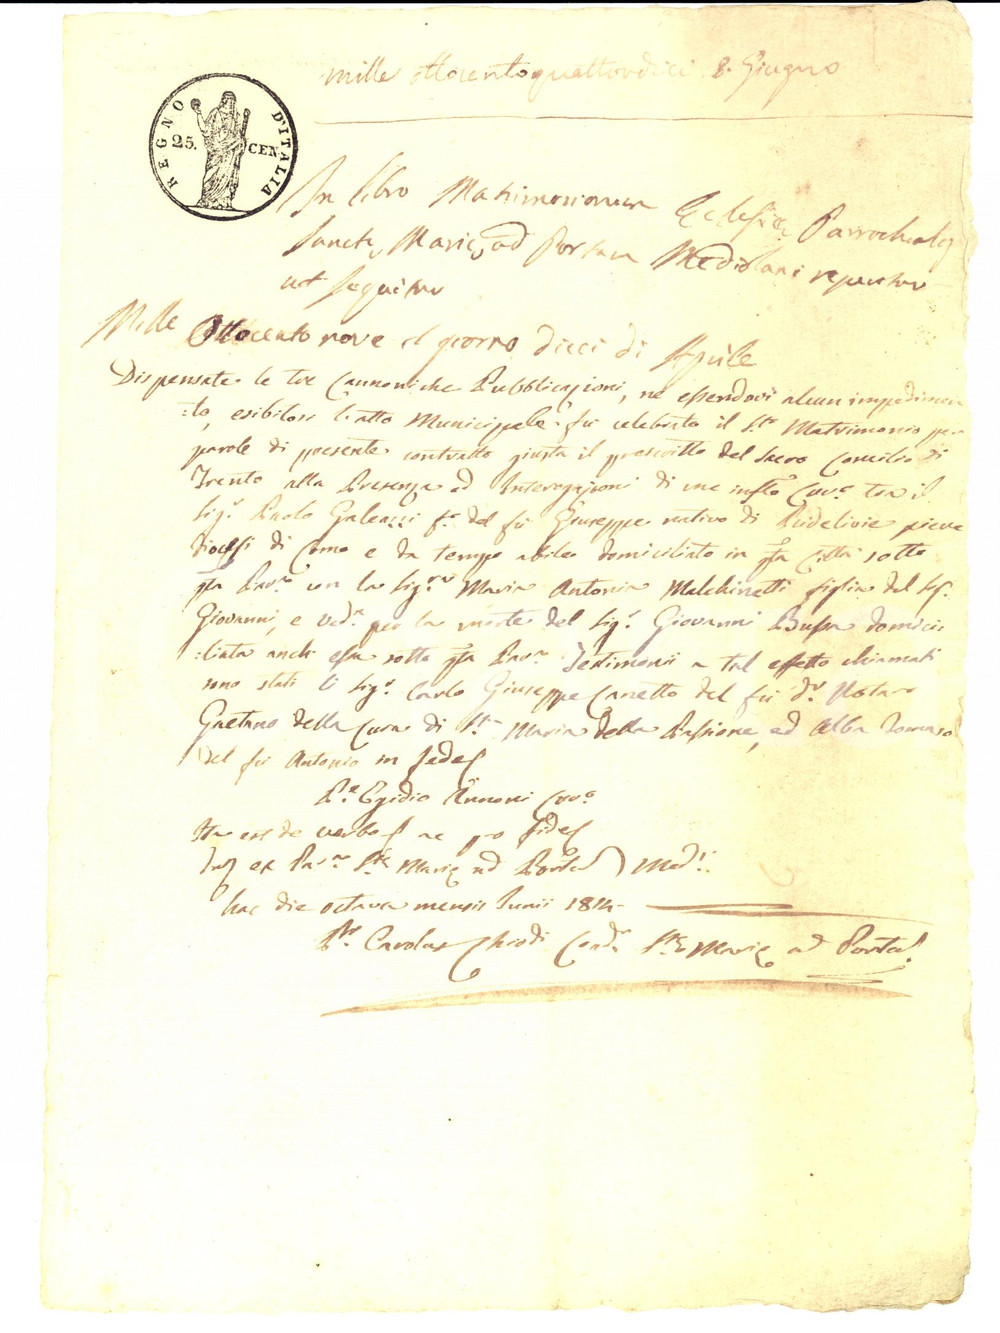 mille ottocentoquattordici 8. Giugno
REGNO D'ITALIA
25. CEN.
In libro Matrimoniorum Ecclesiæ Parrochialis
Sanctæ Mariæ ad Portam Mediolani reperitur
ut sequitur
Mille Ottocento nove il giorno dieci di Aprile
Dispensate le tre Cannoniche Pubblicazioni, nè essendovi alcun impedimen
:to, esibitosi l'atto Municipale fù celebrato il Sto Matrimonio per
parole di presente contratto giusta il prescritto del Sacro Concilio di
Trento alla Presenza ed Interogazioni di me infto Curo tra il
Sigr Paolo Galeazzi fo del fù Giuseppe nativo di pieve
Diocesi di Como e da tempo abile domiciliato in qta Città sotto
qta Parra con la Sigra Maria Antonia Malchinetti figlia del Sigr
Giovanni, e veda per la morte del Sigr Giovanni Bussa domici
:liata anch essa sotto qta Parra Testimonii a tal effetto chiamati
sono stati li Sigri Carlo Giuseppe Canetto del fù Dr Notaro
Gaetano della Cura di Sta Maria della Passione, ed Alba Tomaso
del fù Antonio in fede
Pe Egidio Annoni Curo
Ita est de verbo ac pro fide
ex Parra Stæ Mariæ ad Portam Medi.
hac die octava mensis Junii 1814
Pr Carolus Chiodi Coadr Stæ Mariæ ad Portam